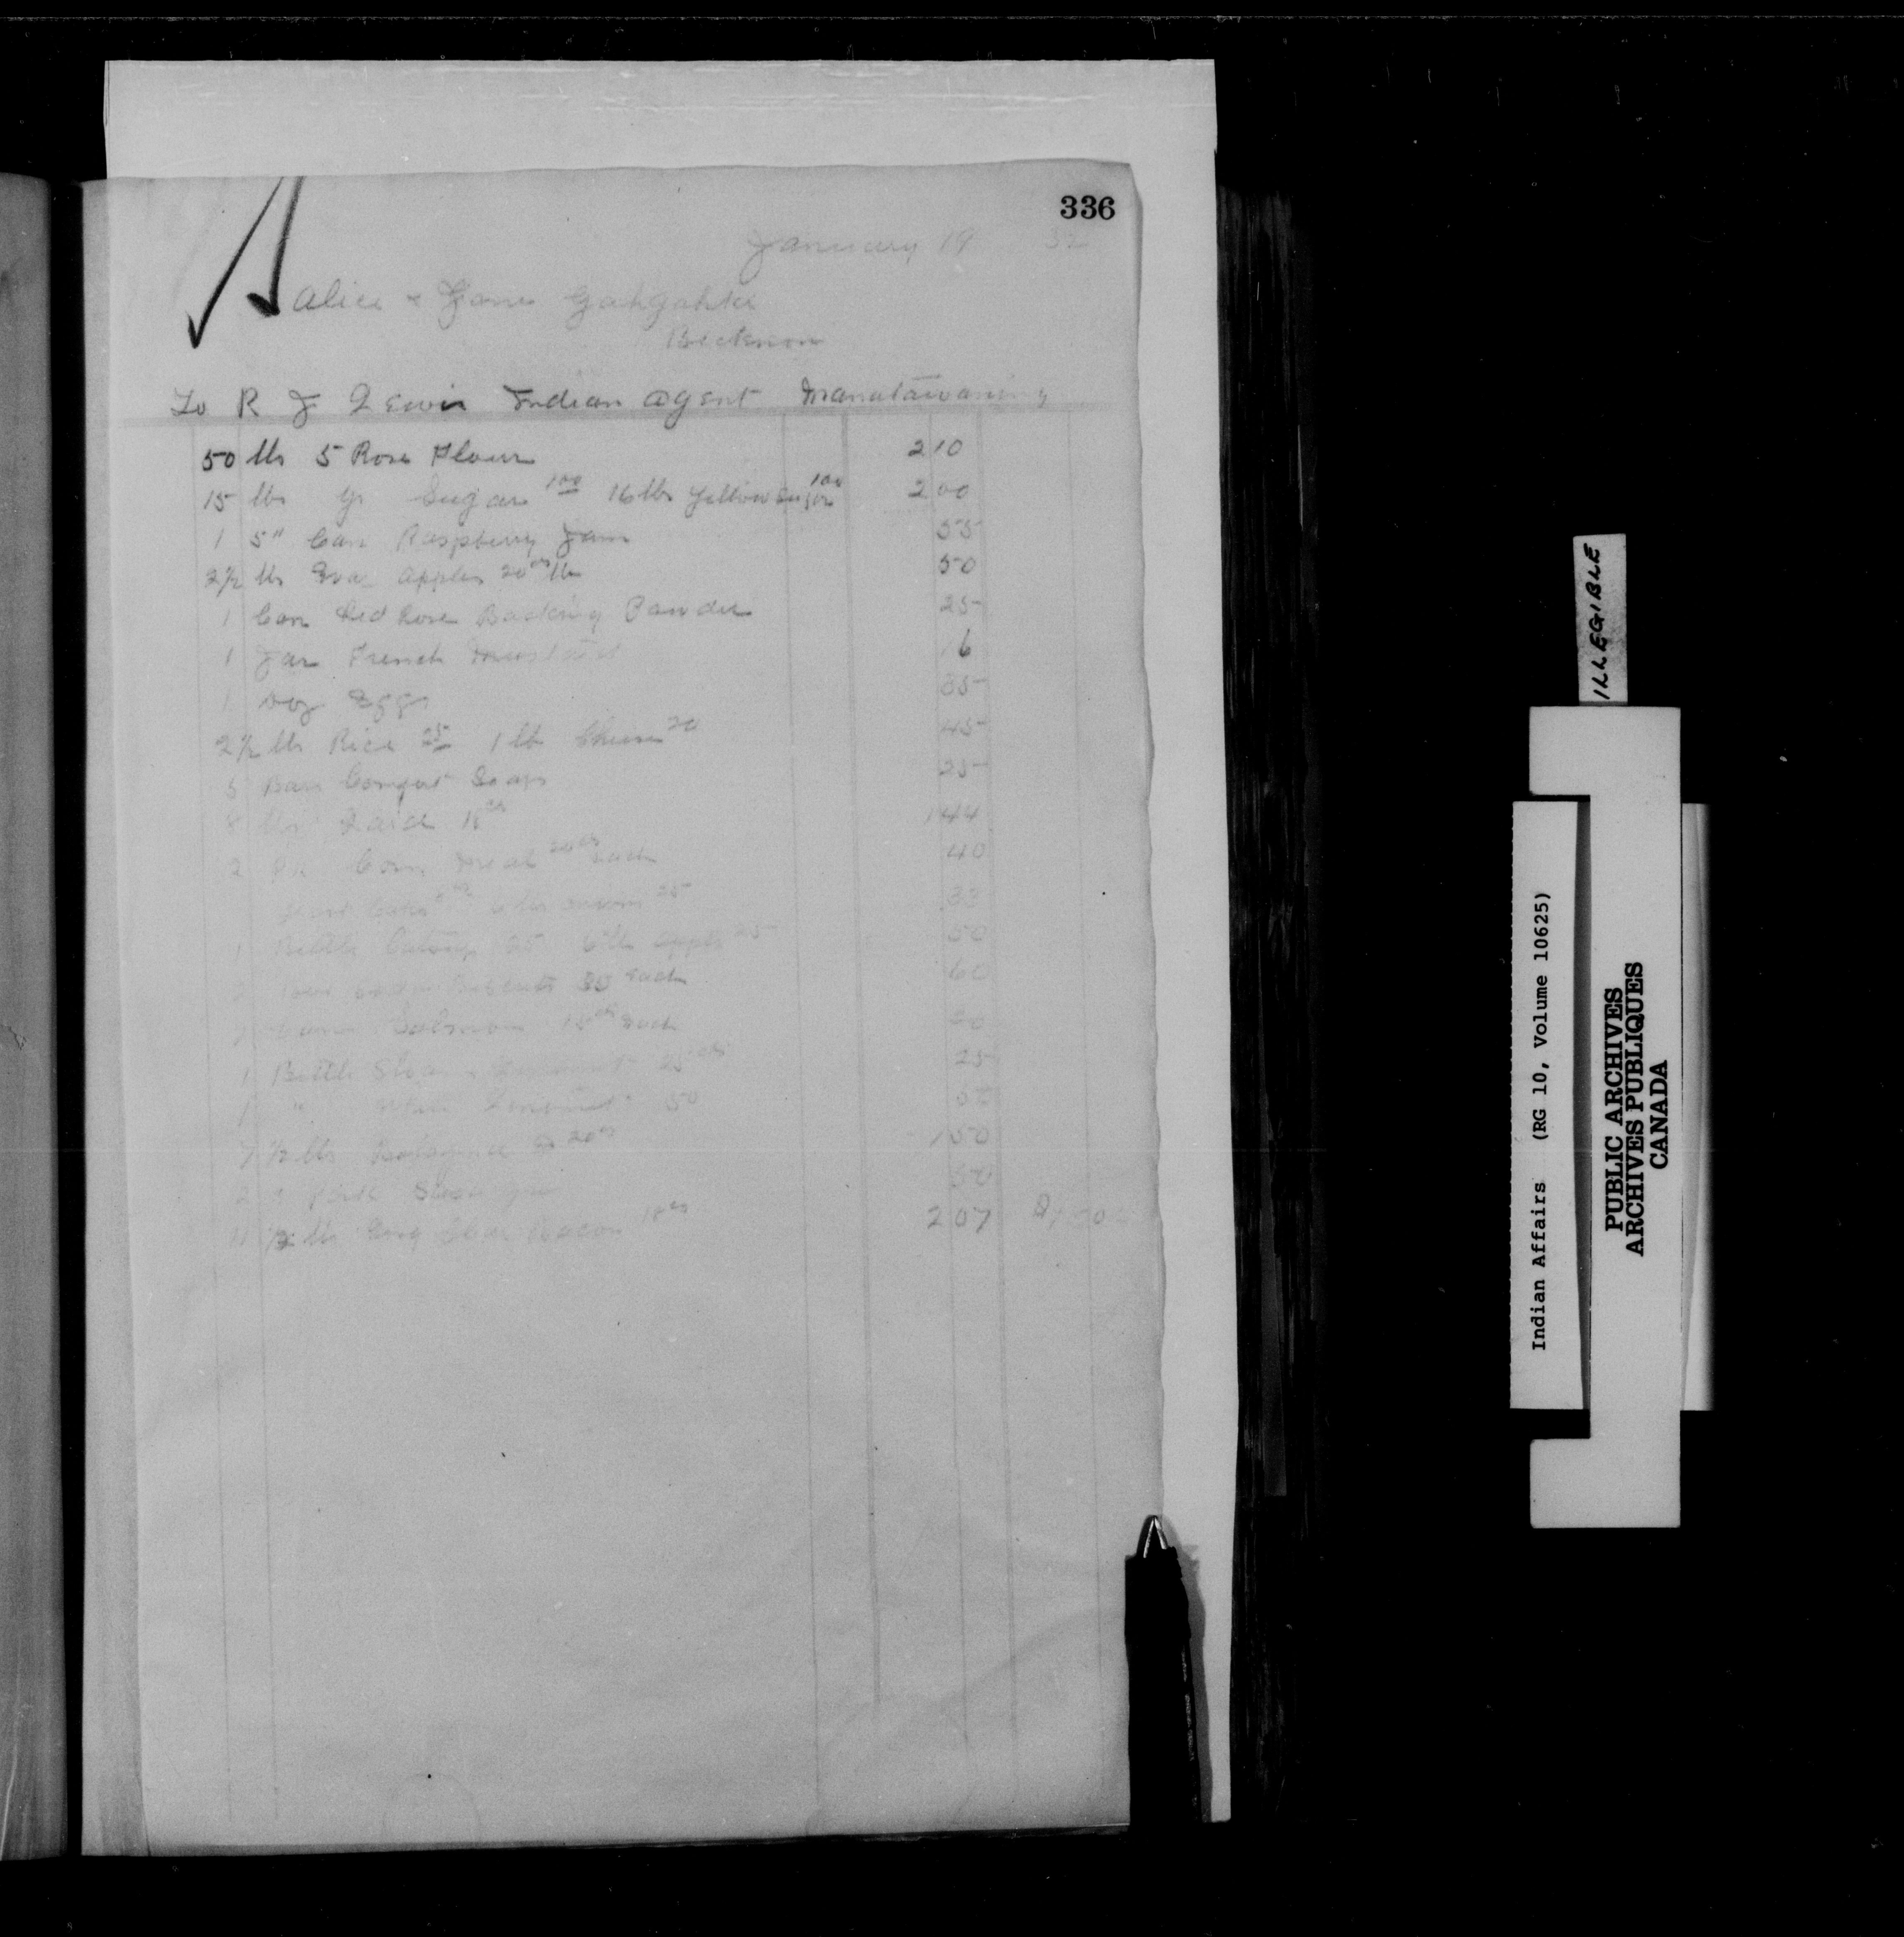 336
January 19 32
Alice & Jane Gahgahke
To R J Lewis Indian Agent Manatawaning
50 lbs 5 Rose Flour 2 10
15 lbs Gr Sugar 1 00 16 lbs Yellow Sugar 1 00 2 00
1 5" Can Raspberry Jam 55
2 1/2 lbs Eva Apples 20 cts lb 50
1 Can Red Rose Backing Powder 25
1 Jar French Mustard 16
1 Doz Eggs 35
2 1/2 lbs Rice 25 1 lb Cheese 20 45
5 Bars Comfort Soap 25
8 lbs Lard 18 cts 1 44
2 Pk Corn Meal 20 cts each 40
onions 25 33
1 Bottle Catsup 25 6 lbs Apples 25 50
Biscuits 30 each 60
Cans Salmon 15 cts each
1 Bottle Sloans Liniment 25 cts 25
1 " White Liniment 50
7 1/2 lbs Bolognie @ 20 cts 1 50
2 " Pork 50
11 1/2 lbs Long Clear Bacon 18 cts 2 07
ILLEGIBLE
Indian Affairs (RG 10, Volume 10625)
PUBLIC ARCHIVES
ARCHIVES PUBLIQUES
CANADA